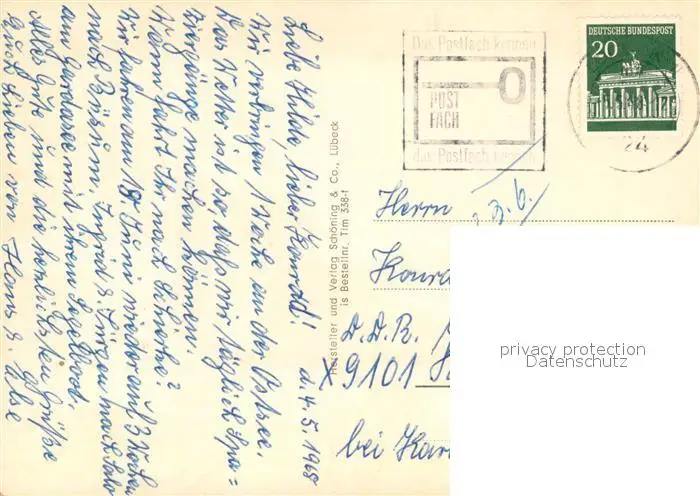 d. 4. 5. 1968
Liebe Hilde, lieber Konrad!
Wir verbringen 1 Woche an der Ostsee.
Das Wetter ist so, daß wir täglich Spa=
ziergänge machen können.
Wann fahrt Ihr nach
Wir fahren am 18. Juni wieder auf 3 Wochen
nach Büsum. Ingrid u. Jürgen nach Salo
am Gardasee mit ihrem Segelboot.
Alles Gute und die herzlichsten Grüße
Euch Lieben von Hans u. Ilse
Hersteller und Verlag Schöning & Co., Lübeck
is Bestellnr. Tim 338-f
Das Postfach kennen
POST
FACH
das Postfach nennen
DEUTSCHE BUNDESPOST
20
24
3. 6.
Herrn
D.D.R.
X9101
bei
privacy protection
Datenschutz